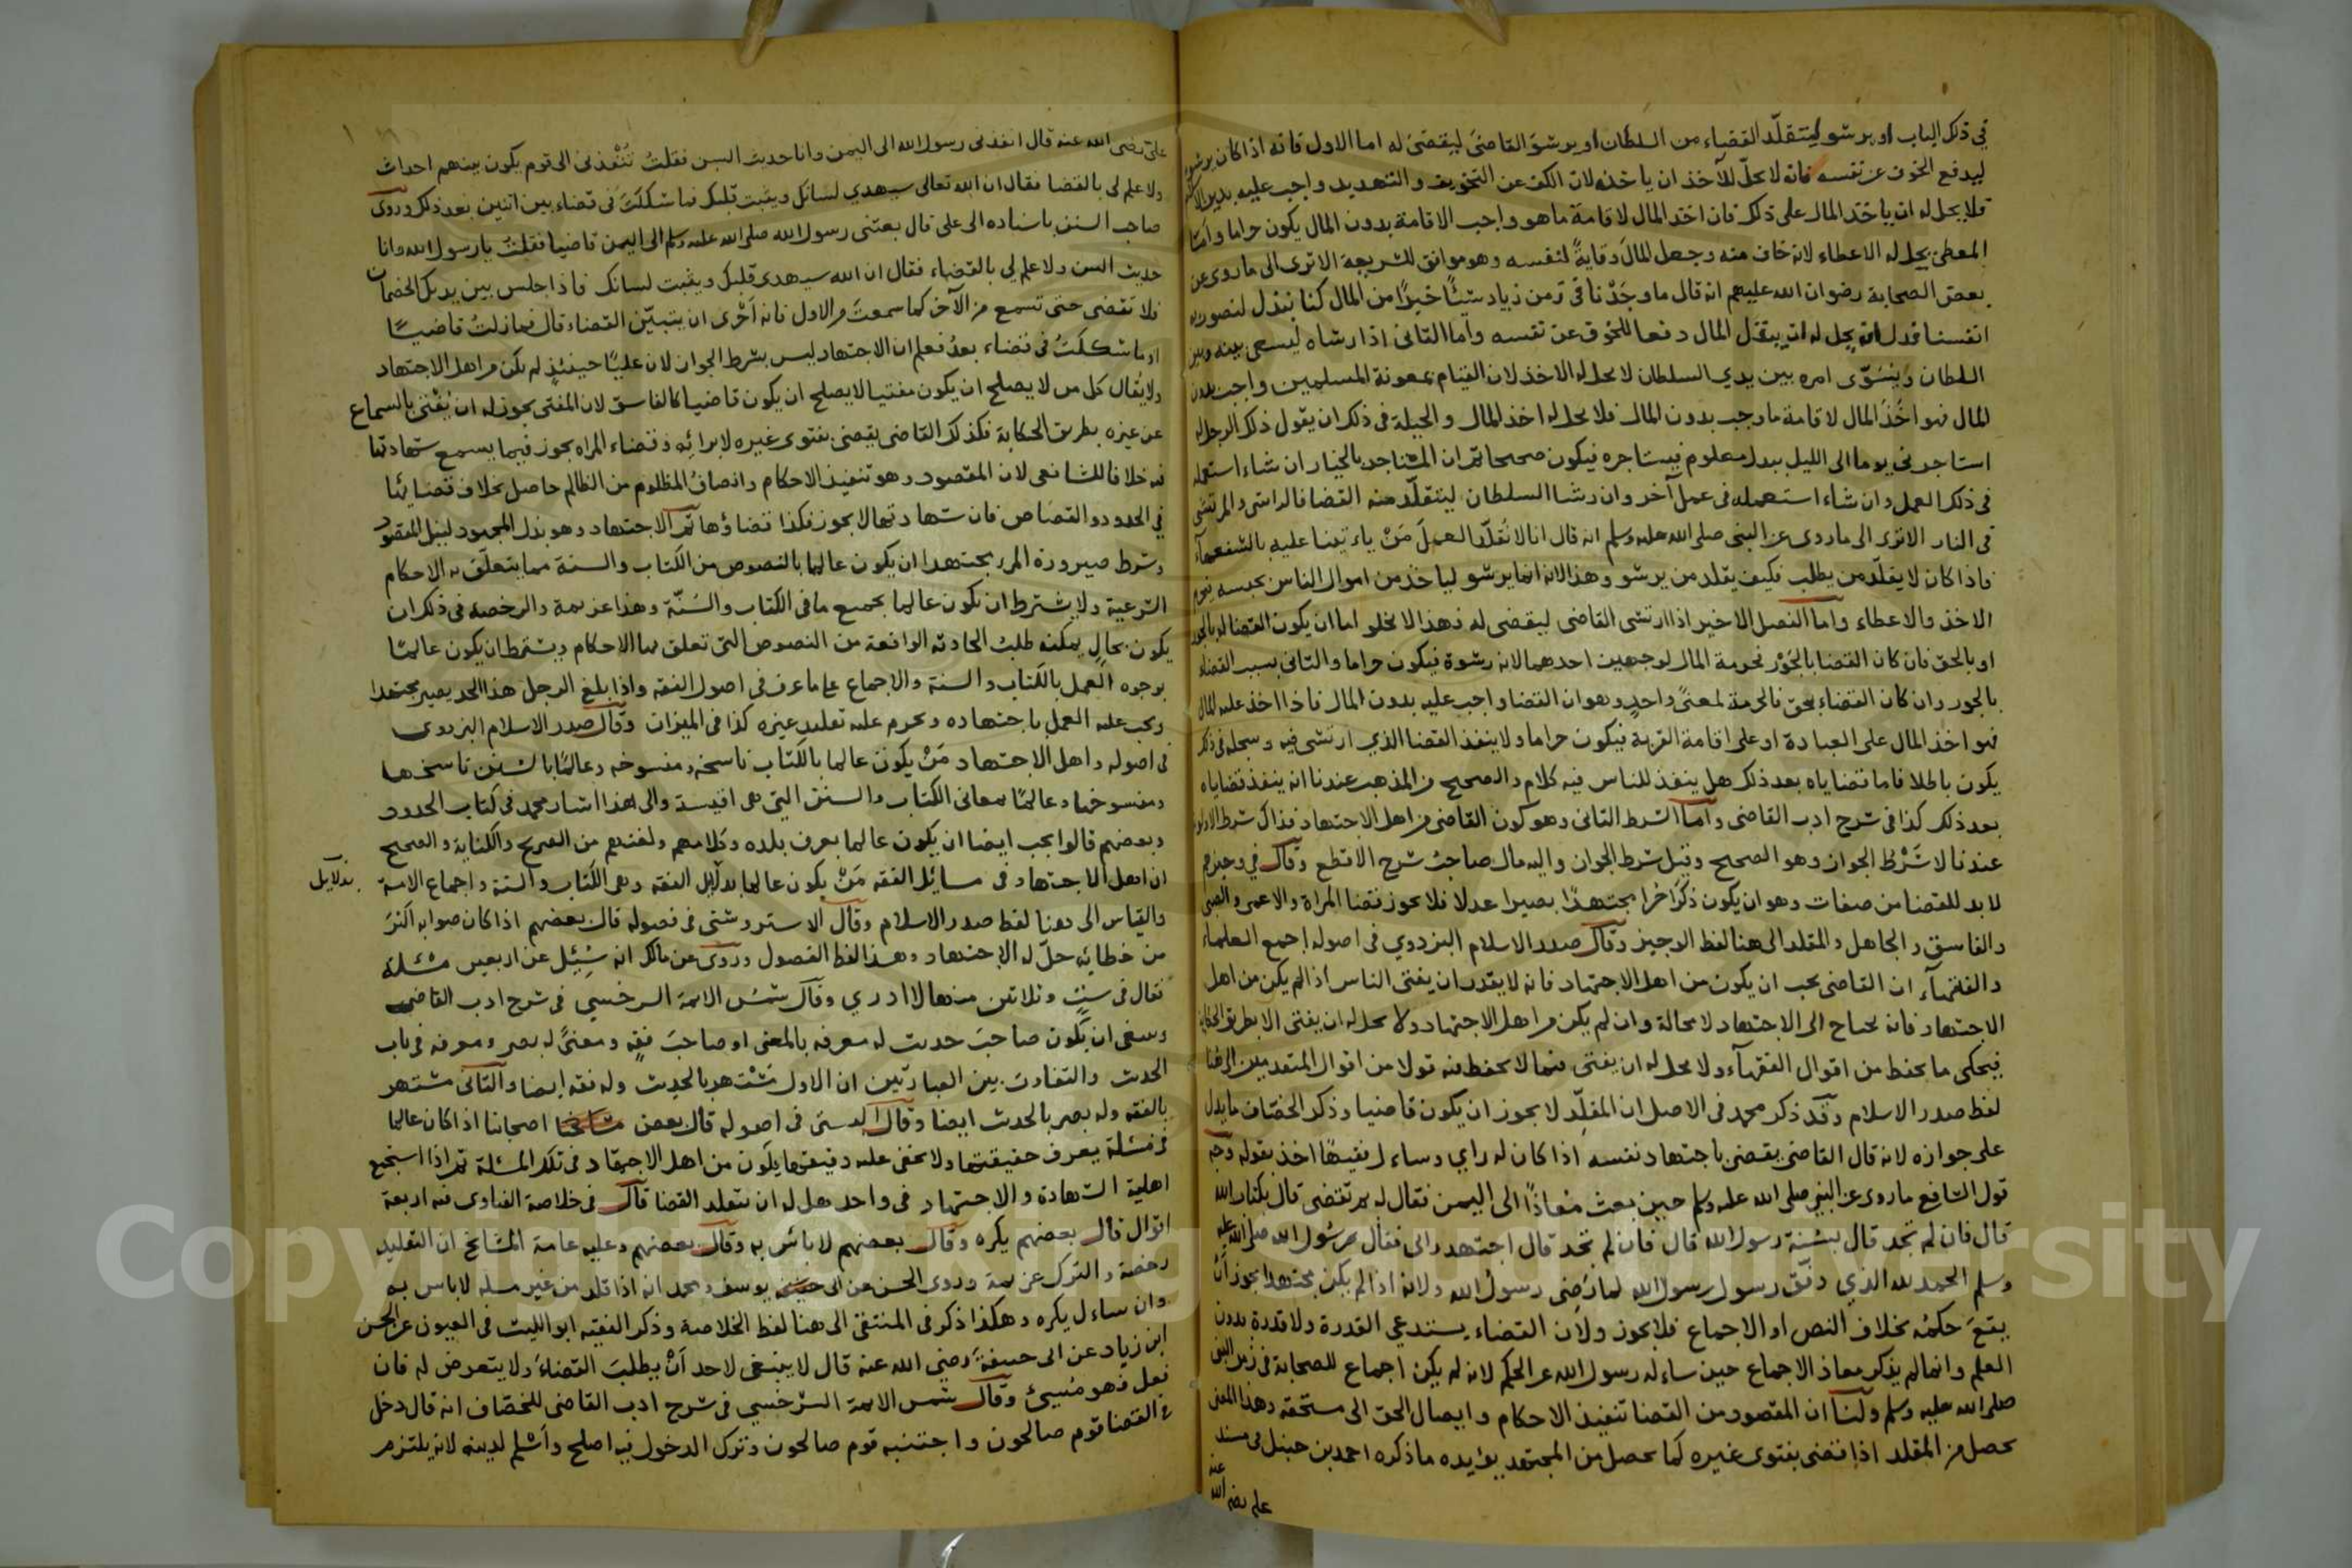 في ذلك الباب او يرشو ليتقلّد القضاء من السلطان او يرشو القاضي ليقضي له اما الاول فانه اذا كان يرشو
ليدفع الخوف عن نفسه فانه لا يحلّ للآخذ ان ياخذه لان الكف عن التخويف والتهديد واجب عليه
فلا يحل له ان ياخذ المال على ذلك فان اخذ المال لاقامة ما هو واجب الاقامة بدون المال يكون حراما واما
المعطي يحل له الاعطاء لانه خاف منه وجعل المال وقايةً لنفسه وهو موافق للشريعة الا ترى الى ما روي عن
بعض الصحابة رضوان الله عليهم انه قال ما وجدنا في زمن زياد شيئًا خيرًا من المال كنا نبذل لنصون به
انفسنا فدل انه يحل له ان يبذل المال دفعا للخوف عن نفسه واما الثاني اذا رشاه ليسعى بينه وبين
السلطان ويسوّى امره بين يدي السلطان لا يحل له الاخذ لان القيام بمعونة المسلمين واجب بدون
المال فهو اخذ المال لاقامة ما وجب بدون المال فلا يحل له اخذ المال والحيلة في ذلك ان يقول ذلك الرجل له
استاجرني يوما الى الليل ببدل معلوم فيستاجره فيكون صحيحا ثم ان المستاجر بالخيار ان شاء استعمله
في ذلك العمل وان شاء استعمله في عمل آخر وان رشا السلطان ليتقلّد منه القضا فالراشي والمرتشي
في النار الا ترى الى ما روي عن النبي صلى الله عليه وسلم انه قال انا لا نُقلّد العمل مَنْ ياءتينا عليه بالشفعاء
فاذا كان لا يقلّد من يطلب فكيف يقلد من يرشو وهذا لانه انما يرشو لياخذ من اموال الناس بحبسه
الاخذ والاعطاء واما الفصل الاخير اذا ارتشى القاضي ليقضي له فهذا لا يخلو اما ان يكون القضا له بالجور
او بالحق فان كان القضا بالجَوْر فحرمة المال لوجهين احدهما لانه رشوة فيكون حراما والثاني بسبب القضاء
بالجور وان كان القضاء بحق فالحرمة لمعنًى واحدٍ وهو ان القضا واجب عليه بدون المال فاذا اخذ عليه المال
فهو اخذ المال على العبادة او على اقامة القربة فيكون حراما ولا ينفذ القضا الذي ارتشى فيه وسجله في ذلك
يكون باطلا فاما قضاياه بعد ذلك هل ينفذ للناس فيه كلام والصحيح من المذهب عندنا انه ينفذ قضاياه
بعد ذلك كذا في شرح ادب القاضي واما الشرط الثاني وهو كون القاضي من اهل الاجتهاد فذاك شرط الاولوية
عندنا لا شَرْطُ الجواز وهو الصحيح وقيل شرط الجواز واليه مال صاحبُ شرح الاقطع وقال في وجيزهم
لا بد للقضا من صفات وهو ان يكون ذكرًا حرا مجتهدًا بصيرا عدلا فلا يجوز قضا المراة والاعمى والصبي
والفاسق والجاهل والمقلد الى هنا لفظ الوجيز وقال صدر الاسلام البزدوي في اصوله اجمع العلماء
والفقهاء ان القاضي يجب ان يكون من اهل الاجتهاد فانه لا يقدر ان يفتي الناس اذا لم يكن من اهل
الاجتهاد فانه يحتاج الى الاجتهاد لا محالة وان لم يكن من اهل الاجتهاد ولا يحل له ان يفتي الا بطريق الحكاية
فيحكى ما يحفظ من اقوال الفقهاء ولا يحل له ان يفتي فيما لا يحفظ فيه قولا من اقوال المتقدمين الى هنا
لفظ صدر الاسلام وقد ذكر محمد في الاصل ان المقلِّد لا يجوز ان يكون قاضيا وذكر الخصّاف ما يدل
على جوازه لانه قال القاضي يقضي باجتهاد نفسه اذا كان له راي وساءل فقيهًا اخذ بقوله وجه
قول الشافع ما روي عن النبي صلى الله عليه وسلم حين بعث معاذًا الى اليمن فقال له بم تقضي قال بكتاب الله
قال فان لم تجد قال بسُنة رسول الله قال فان لم تجد قال اجتهد رايى فقال رسُول الله صلى الله عليه
وسلم الحمد لله الذي وفّق رسول رسول الله لما رَضِى رسولُ الله ولانه اذا لم يكن مجتهدا يجوز ان
يقعَ حكمُه بخلاف النص او الاجماع فلا يجوز ولان القضاء يستدعي القدرة ولا قدرة بدون
العلم وانما لم يذكر معاذ الاجماع حين ساءله رسول الله عن الحكم لانه لم يكن اجماع للصحابة في زمن النبي
صلى الله عليه وسلم ولنا ان المقصود من القضا تنفيذ الاحكام وايصال الحق الى مستحقه وهذا المعنى
يحصل من المقلد اذا قضى بفتوى غيره كما يحصل من المجتهد يؤيده ما ذكره احمد بن حنبل في مسنده عن
علي رضي الله
علي رضي الله عنه قال انفذني رسول الله الى اليمن وانا حديث السن فقلتُ تُنْفذني الى قوم يكون بينهم احداث
ولا علم لي بالقضا فقال ان الله تعالى سيهدي لسانك ويثبت قلبك فما شككتَ في قضاء بين اثنين بعد ذلك وروى
صاحب السنن باسناده الى علي قال بعثني رسول الله صلى الله عليه وسلم الى اليمن قاضيا فقلتُ يا رسول الله وانا
حديث السن ولا علم لي بالقضاء فقال ان الله سيهدى قلبك ويثبت لسانك فاذا جلس بين يديك الخصمان
فلا تقضى حتى تسمع من الآخر كما سمعتَ من الاول فانه اَحْرى ان يتبيّن القضاء قال فما زلتُ قاضيًا
او ما شككتُ في قضاء بعدُ فعلم ان الاجتهاد ليس بشرط الجواز لان عليًا حينئذٍ لم يكن من اهل الاجتهاد
ولا يُقال كل من لا يصلح ان يكون مفتيا لا يصلح ان يكون قاضيا كالفاسق لان المفتي يجوز له ان يُفتي بالسماع
عن غيره بطريق الحكاية فكذلك القاضي يقضي بفتوى غيره لا برائه وقضاء المراه يجوز فيما يسمع شهادتها
فيه خلافا للشافعي لان المقصود وهو تنفيذ الاحكام وانصافُ المظلوم من الظالم حاصل بخلاف قضائها
في الحدود والقصاص فان شهادتها لا يجوز فكذا قضاؤها ثم الاجتهاد وهو بذل المجهود لنيل المقصود
وشرط صيرورة المرء مجتهدا ان يكون عالما بالنصوص من الكتاب والسنة مما يتعلّق به الاحكام
الشرعية ولا يشترط ان يكون عالما بجميع ما في الكتاب والسُنّة وهذا عزيمة والرخصه في ذلك ان
يكون بحالٍ يمكنه طلبُ الحادثه الواقعة من النصوص التي تعلق بها الاحكام ويشترط ان يكون عالمًا
بوجوه العمل بالكتاب والسنة والاجماع على ما عرف في اصول الفقه واذا بلغ الرجل هذا الحد يصير مجتهدا
ويجب عليه العمل باجتهاده ويحرم عليه تقليد غيره كذا في الميزان وقال صدر الاسلام البزدوى
في اصوله واهل الاجتهاد مَنْ يكون عالما بالكتاب ناسخه ومنسوخه وعالمًا بالسنن ناسخها
ومنسوخها وعالمًا بمعاني الكتاب والسنن التي هي اقيسة والى هذا اشار محمد في كتاب الحدود
وبعضهم قالوا يجب ايضا ان يكون عالما بعرف بلده وكلامهم ولغتهم من الصريح والكناية والصحيح
ان اهل الاجتهاد في مسائل الفقه مَنْ يكون عالما بدلايل الفقه وهي الكتاب والسنة واجماع الامة
بدلايل
والقياس الى هنا لفظ صدر الاسلام وقال الاستروشني في فصوله قال بعضهم اذا كان صوابه اكثر
من خطائِه حلّ له الاجتهاد وهذا لفظ الفصول وروى عن مالك انه سُئِل عن اربعين مسئلة
فقال في ستٍ وثلاثين منها لا ادري وقال شمسُ الائمة السرخسي في شرح ادب القاضي
وينبغى ان يكون صاحبَ حديث له معرفه بالمعنى او صاحبَ فقهٍ ومعنًى له بصر ومعرفه في باب
الحديث والتفاوت بين العبارتين ان الاول مُشْتهر بالحديث وله فقه ايضا والثاني مشتهر
بالفقه وله بصر بالحديث ايضا وقال في اصوله قال بعض اصحابنا اذا كان عالما
في مسئلة يعرف حقيقتها ولا يخفى عليه دقيقها يكون من اهل الاجتهاد في تلك المسئلة ثم اذا استجمع
اهلية الشهادة والاجتهاد في واحد هل له ان يتقلد القضا قال في خلاصة الفتاوى فيه اربعة
اقوال قال بعضهم يكره وقال بعضهم لا بائس به وقال بعضهم وعليه عامة المشايخ ان التقليد
رخصة والترك عزيمة وروى الحسن عن ابى يوسف ومحمد انه اذا قلد من غير مسئله لا باس به
وان ساءل يكره وهكذا ذكر في المنتقى الى هنا لفظ الخلاصة وذكر الفقيه ابو الليث في العيون عن الحسن
ابن زياد عن ابى حنيفةَ رضي الله عنه قال لا ينبغى لاحد اَنْ يطلبَ القضاءَ ولا يتعرض له فان
فعل فهو مُسيئ وقال شمس الائمة السَرخسي في شرح ادب القاضي للخصّاف انه قال دخل
في القضا قوم صالحون واجتنبه قوم صالحون وترك الدخول فيه اصلح واَسْلم لدينه لانه يلتزم
Copyright © King Saud University